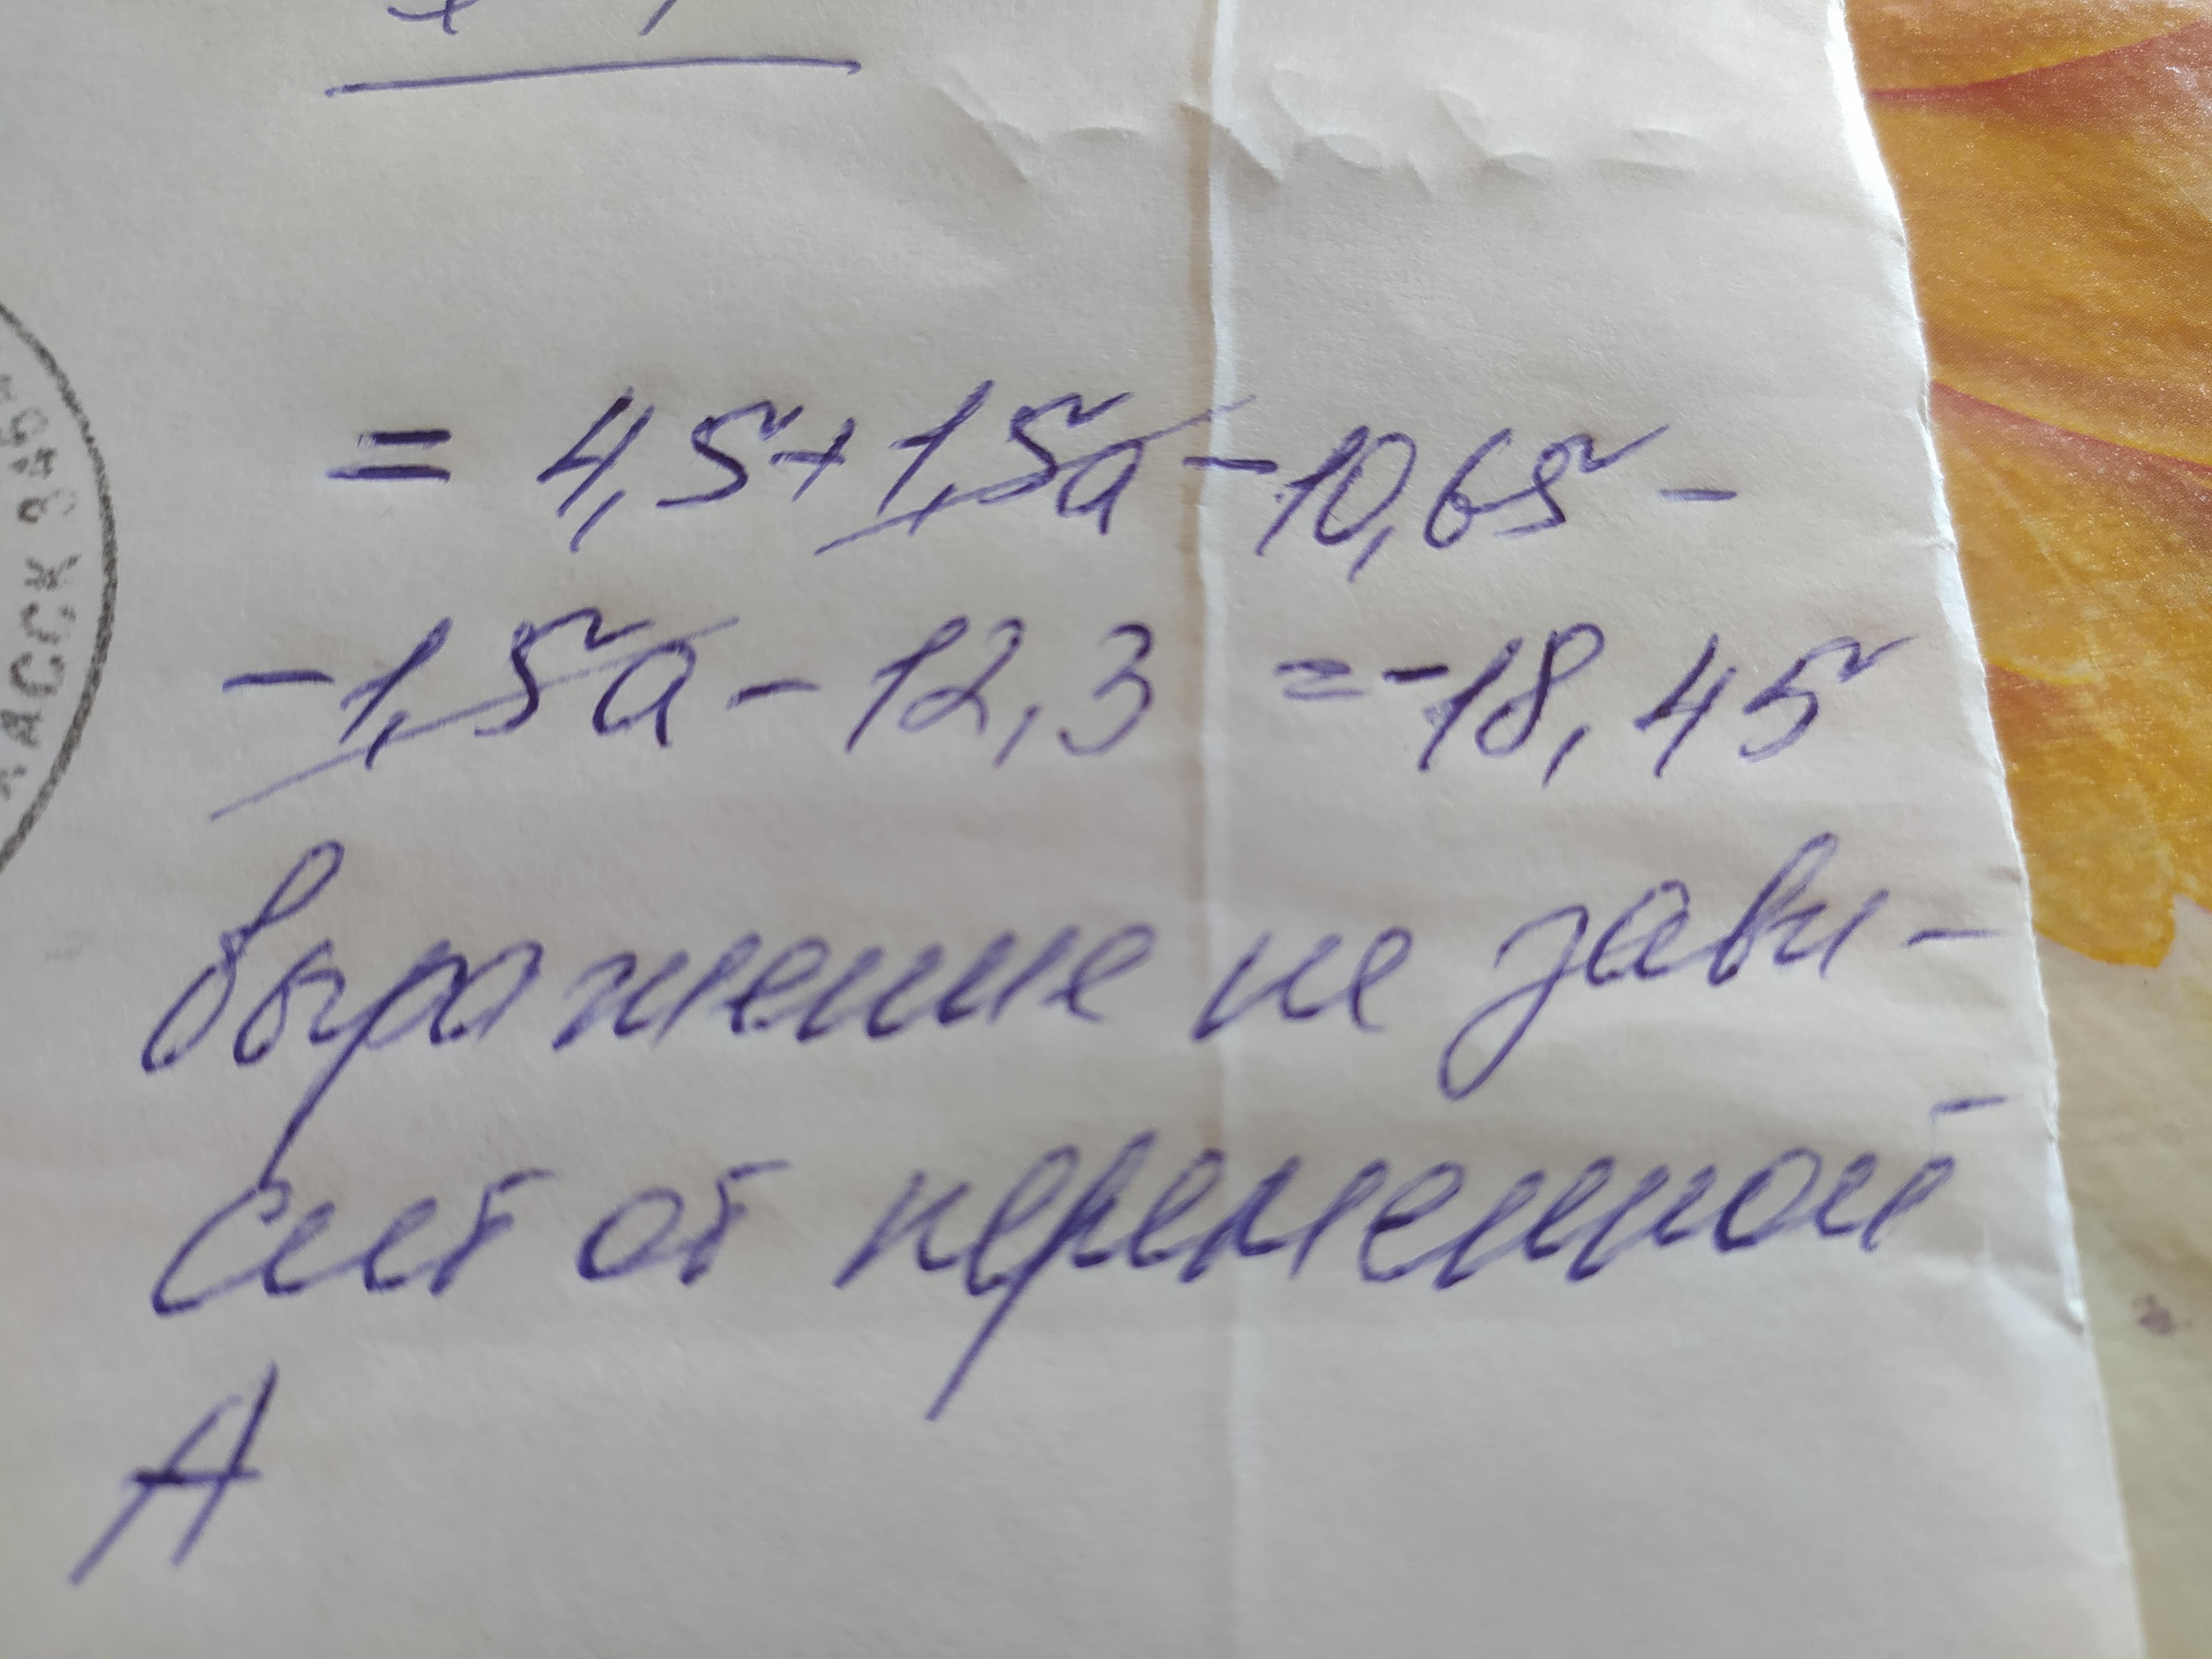 = 4,5+1,5а-10,65-
-1,5а-12,3 =-18,45
выражение не зави-
сит от переменной
А